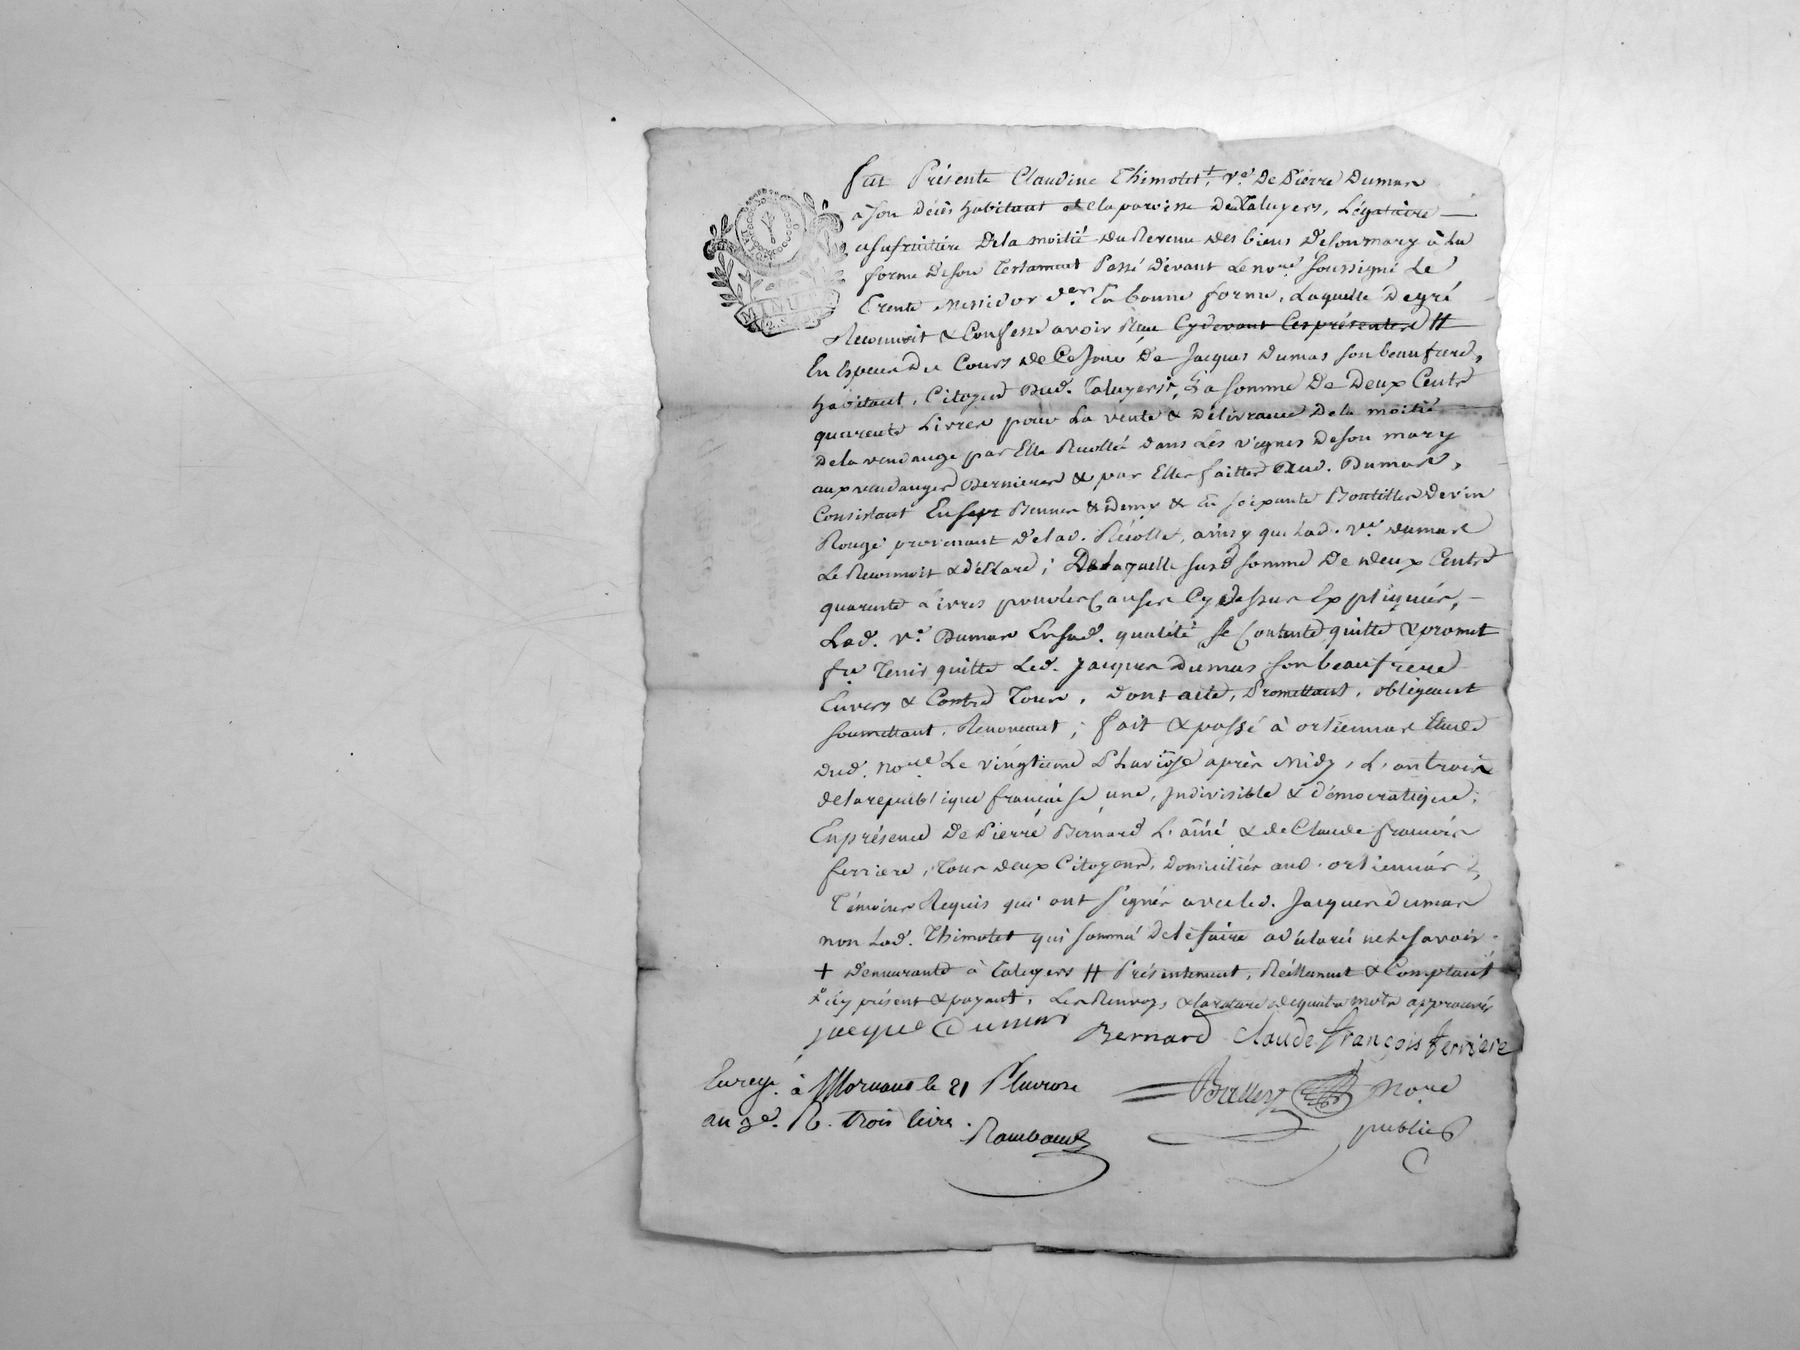 fut Présente Claudine Thimolet +, ve. De Pierre Dumas
à son décès habitant de la paroisse de Taluyers, Légataire
usufruitière De la moitié Du Revenu des biens De son mary à la
forme De son Testament Passé devant Le nore. soussigné Le
Trente Messidor der. En bonne forme, Laquelle De gré
Reconnoit & Confesse avoir Reçu Cydevant Ces présentes #
En Espece Du Cours de Ce Jour De Jacques Dumas son beaufrere,
habitant, Citoyen Dud. Taluyers, La somme De Deux Cents
quarente Livres pour La vente & Délivrance De la moitié
De la vendange par Elle Recoltée dans Les vignes De son mary
aux vendanges Dernieres & par Elle faittes Dud. Dumas,
Consistant En sept Bennes & Demy & En soixante Bouteilles De vin
Rouge provenant De lad. Récolte, ainsy que Lad. ve. Dumas
Le Reconnoit & déclare ; De laquelle susd. somme De Deux Cents
quarente Livres pour les Causes Cy Dessus Expliquées,
Lad. ve. Dumas En sad. qualité se Contente quitte & promet
fre Tenir quitte Led. Jacques Dumas son beaufrere
Envers & Contre Tous, Dont acte, Promettant, obligeant
soumettant, Renonceant ; fait & passé à orliennas Etude
Dud. nore. Le vingtieme Pluviôse après Midy, L'an trois
de la republique française une, indivisible & démocratique ;
En présence De Pierre Bernard L'aîné & de Claude françois
ferriere, Tous deux Citoyens, Domiciliés aud. orliennas,
Témoins Requis qui ont signés avec led. Jacques Dumas
non Lad. Thimolet qui sommée De le faire a déclaré ne le savoir.
+ demeurante à Taluyers # Présentement, Réellement & Comptant
icy présent & payant, Les Renvoys & la rature de quatre mots approuvés
jacque Dumas Bernard Claude François ferriere
Enregé. à Mornant le 21 Pluviose
an 3e. R. trois livres.
nore
public
MINUTE